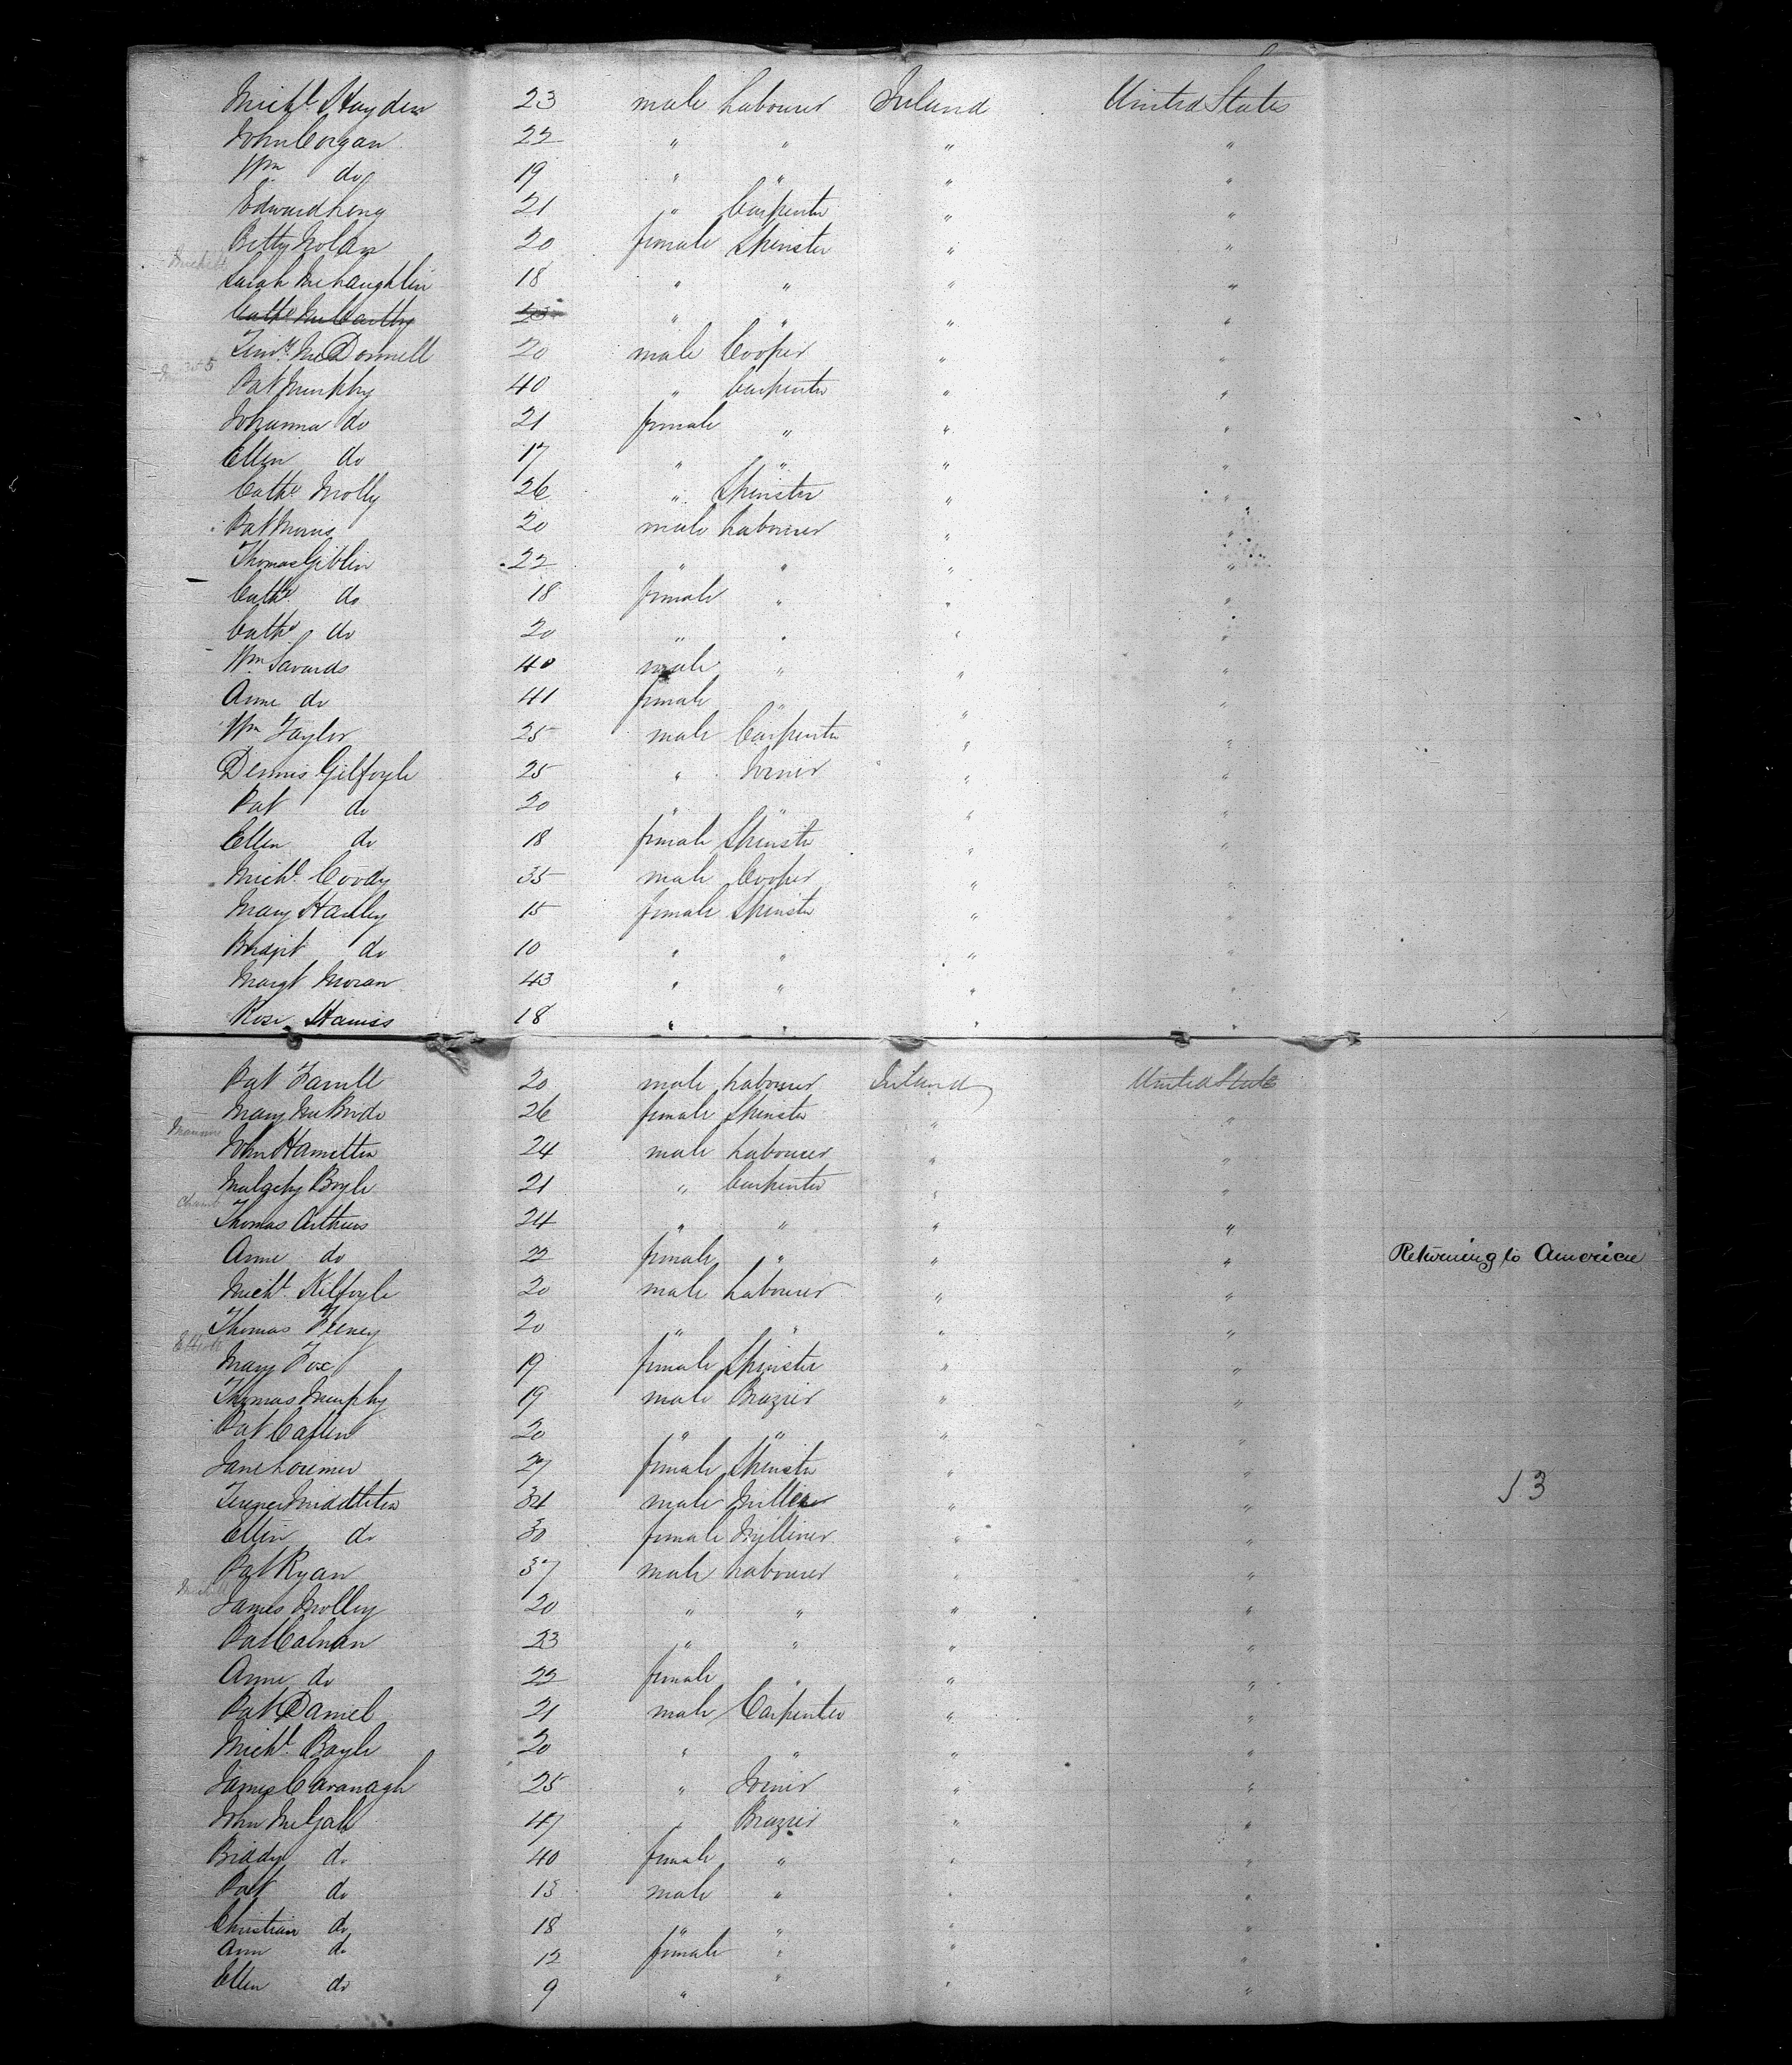 Michl Hayden 23 male Labourer Ireland United States
John Corgan 22 " " " "
Wm do 19 " " " "
Edward Leng 21 " Carpenter " "
Betty Nolan 20 female Spinster " "
Sarah McLaughlin 18 " " " "
Cathe McCarthy 23 " " " "
Timy McDonnell 20 male Cooper " "
Pat Murphy 40 " Carpenter " "
Johanna do 21 female " " "
Ellen do 17 " " " "
Cathe Molly 26 " Spinster " "
Pat Morris 20 male Labourer " "
Thomas Giblin 22 " " " "
Cathe do 18 female " " "
Cathe do 20 " " " "
Wm Savards 40 male " " "
Anne do 41 female " " "
Wm Taylor 25 male Carpenter " "
Dennis Gilfoyle 25 " Joiner " "
Pat do 20 " " " "
Ellen do 18 female Spinster " "
Michl Coody 35 male Cooper " "
Mary Hanley 15 female Spinster " "
Bridgit do 10 " " " "
Margt Moran 43 " " " "
Rose Harriss 18 " " " "
Pat Farrell 20 male Labourer Ireland United States
Mary McBride 26 female Spinster " "
John Hamilton 24 male Labourer " "
Malachy Boyle 21 " Carpenter " "
Thomas Arthurs 24 " " " "
Anne do 22 female " " " Returning to America
Michl Kilfoyle 20 male Labourer " "
Thomas Feeney 20 " " " "
Mary Fox 19 female Spinster " "
Thomas Murphy 19 male Brazier " "
Pat Callen 20 " " " "
Jane Lorimer 27 female Spinster " "
Middleton 34 male Miller " " 53
Ellen do 30 female Milliner " "
Pat Ryan 37 male Labourer " "
James Molley 20 " " " "
Pat Calnan 23 " " " "
Anne do 22 female " " "
Pat Daniel 21 male Carpenter " "
Michl Boyle 20 " " " "
James Cavanagh 25 " Joiner " "
John McGah 47 " Brazier " "
Biddy do 40 female " " "
Pat do 13 male " " "
Christian do 18 " " " "
Ann do 12 female " " "
Ellen do 9 " " " "